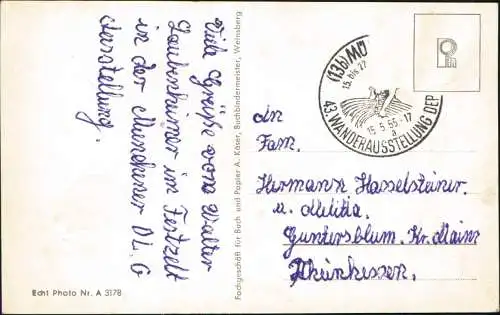 Viele Grüße vom Walter
Laubenheimer im Festzelt
in der Münchener D.L.G
Ausstellung.
Echt Photo Nr. A 3178
Fachgeschäft für Buch und Papier A. Käser, Buchbindermeister, Weinsberg
(13b) MÜ
15. bis 27
15.5.55-17
a
43. WANDERAUSSTELLUNG DER
An
Fam.
Hermann Hasselsteiner.
u. Militia.
Guntersblum. Kr. Mainz
Rheinhessen.